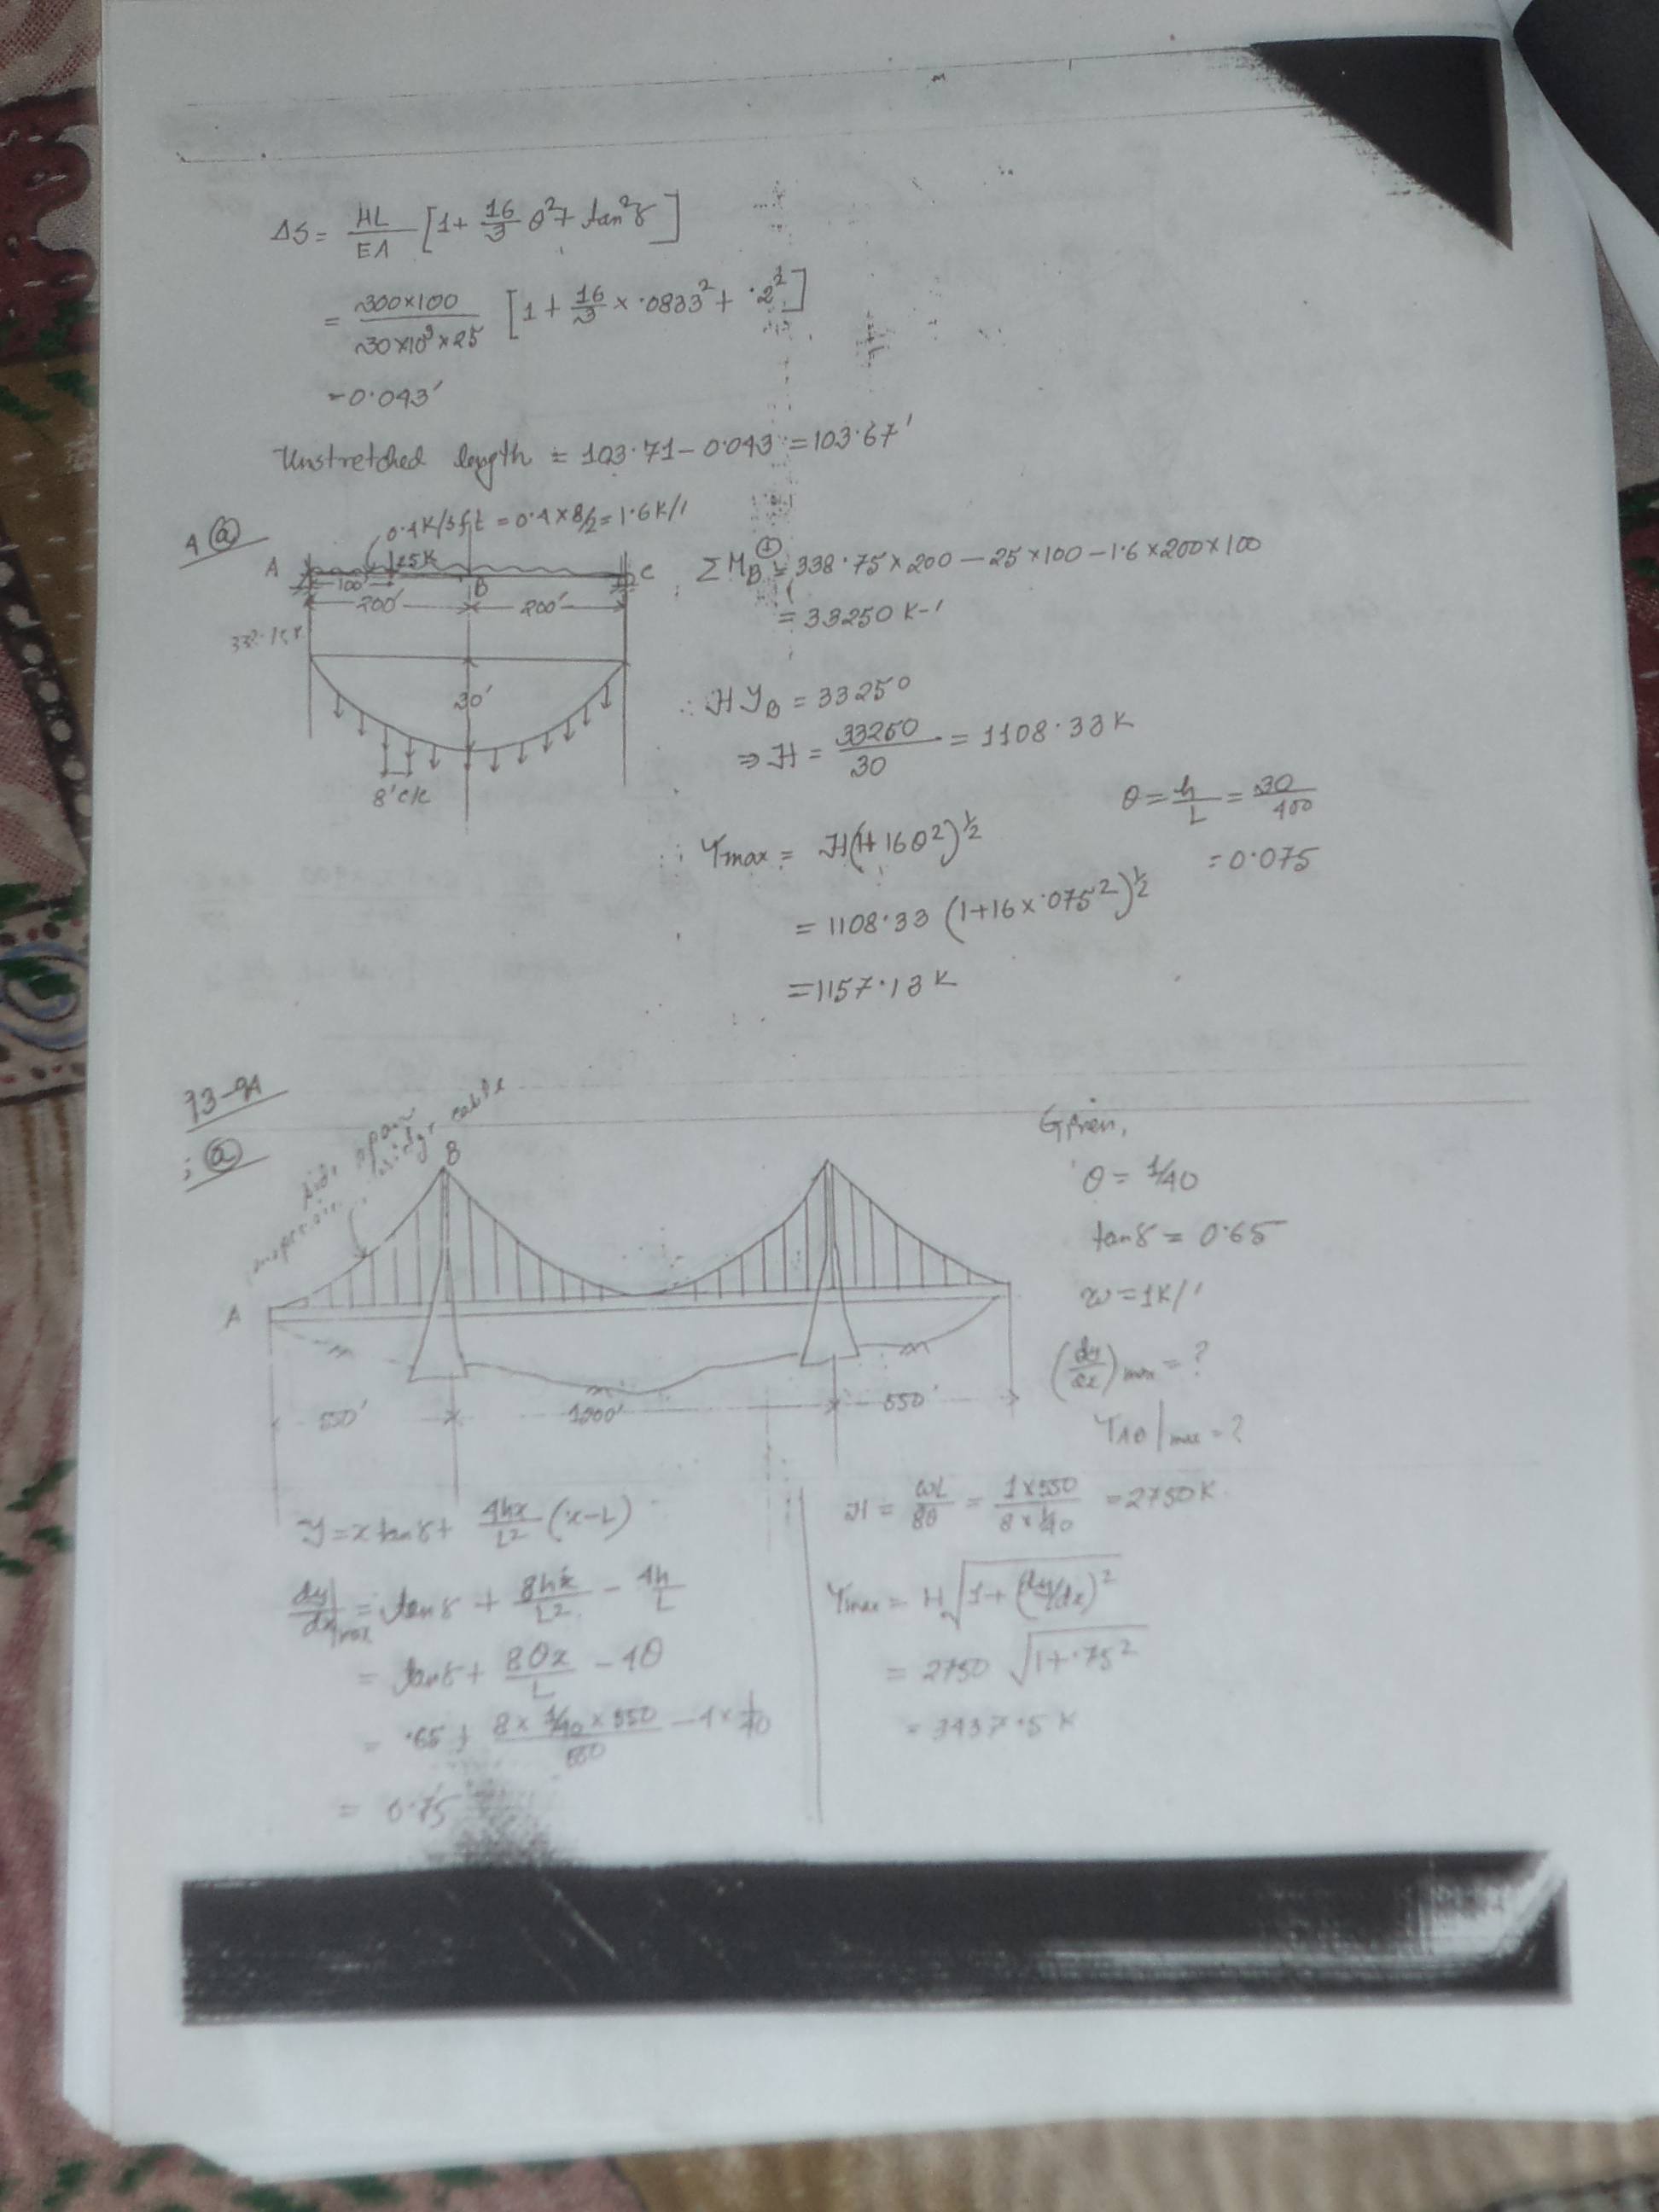 ΔS = HL/EA [1 + 16/3 θ² + tan²γ]
= 300×100/30×10³×25 [1 + 16/3 × ·0833² + ·2²]
= 0·043'
Unstretched length = 103·71 - 0·043 = 103·67'
4 (a)
0·4K/3ft = 0·4×8/2 = 1·6K/'
25K
A
B
C
100'
200'
200'
30'
8'c/c
ΣM_B = 338·75×200 - 25×100 - 1·6×200×100
= 33250 K-'
∴ H y_B = 33250
⇒ H = 33250/30 = 1108·33 K
θ = h/L = 30/400
= 0·075
∴ Tmax = H(1+16θ²)^½
= 1108·33 (1+16×·075²)^½
= 1157·13 K
93-94
(a)
side span
cable
B
A
550'
550'
Given,
θ = 1/40
tanγ = 0·65
w = 1K/'
(dy/dx)max = ?
TAB|max = ?
y = x tanγ + 4hx/L² (x-L)
dy/dx|max = tanγ + 8hx/L² - 4h/L
= tanγ + 8θx/L - 4θ
= ·65 + 8×1/40×550/550 - 4×1/40
= 0·75
H = ωL/8θ = 1×550/8×1/40 = 2750K
Tmax = H√1+(dy/dx)²
= 2750 √1+·75²
= 3437·5 K